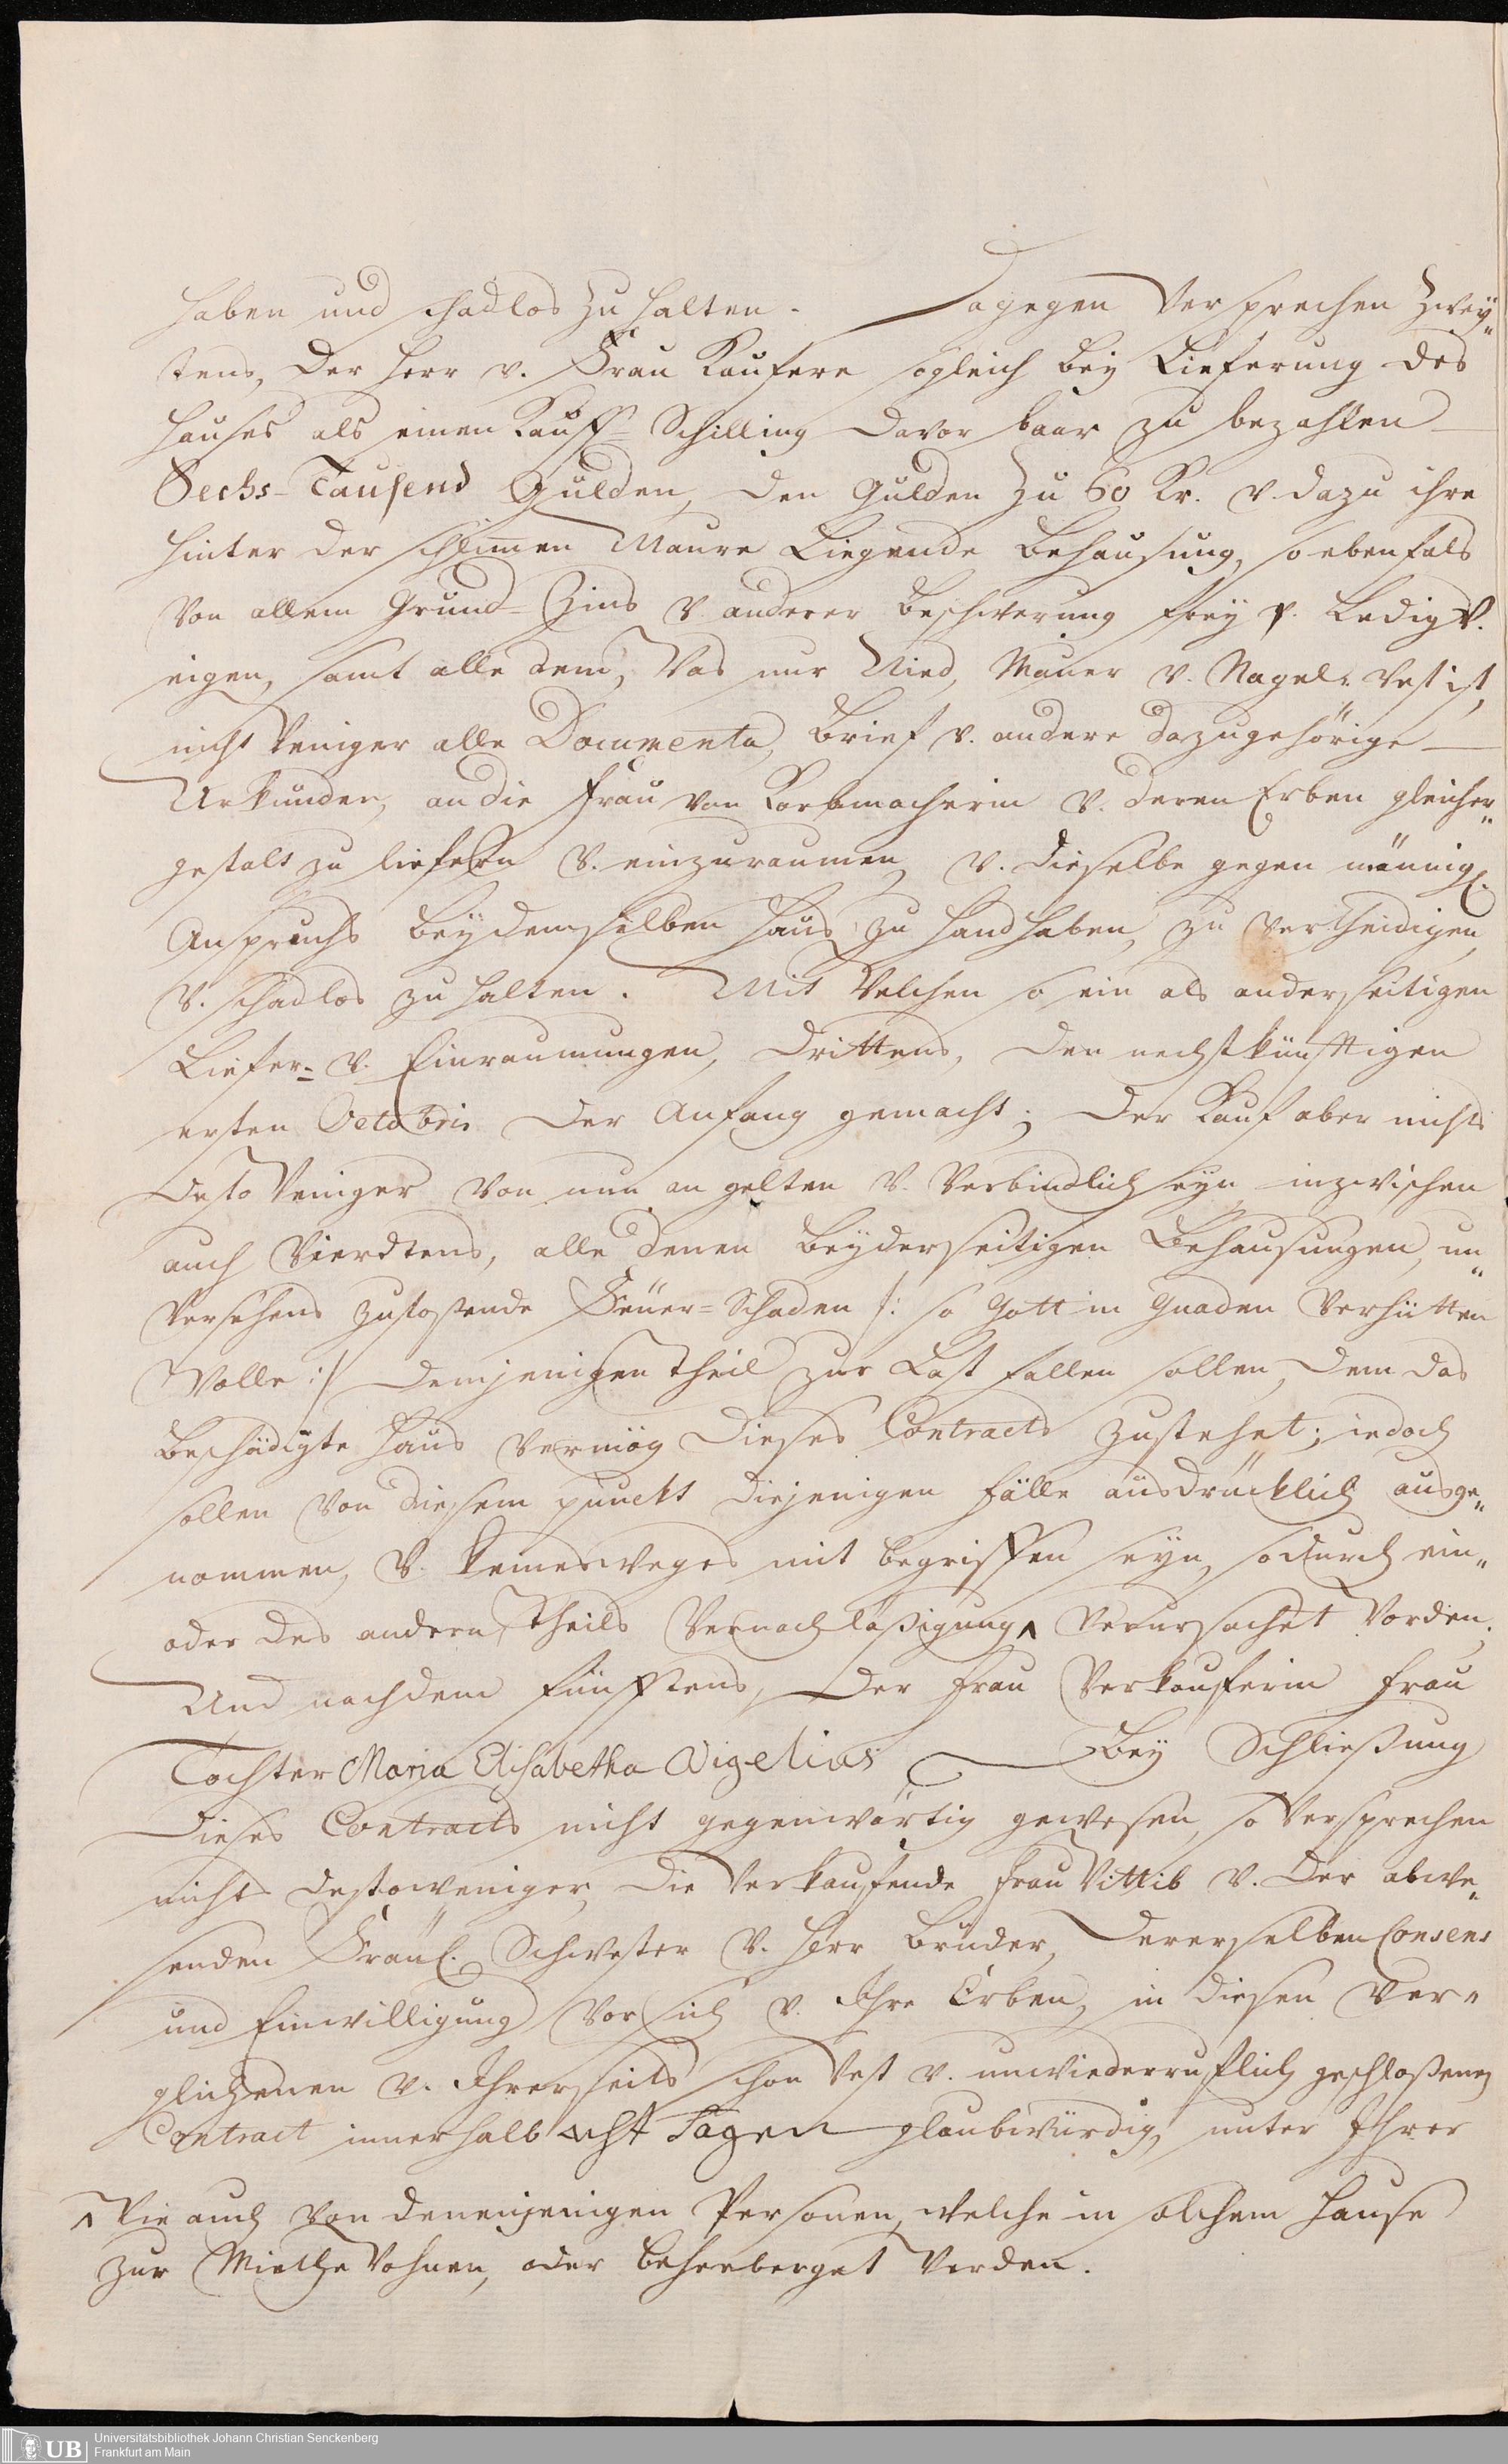 haben und schadlos zu halten. Dagegen versprechen zwey„
tens, der Herr v. Frau Kaufere sogleich bey Lieferung des
Hauses als einen Kauff-Schilling davor baar zu bezahlen
Sechs-Tausend Gulden, den Gulden zu 60 Kr. v. dazu ihre
hinter der schlimen Mauer Liegende Behausung, so ebenfals
von allem Grund-Zins v. anderer Beschwerung frey v. Ledig v.
eigen, samt alle dem, Was nur Nied, Mauer v. Nagel-vest ist,
nicht weniger alle Documenta, Brief v. andere dazugehörige
Urkunden, an die Frau von Korbmacherin v. deren Erben gleicher„
gestalt zu liefern v. einzuraumen, v. dieselbe gegen männigl.
Anspruchs bey demselben Haus zu handhaben, zu vertheidigen,
v. schadlos zu halten. Mit Welchen so ein als anderseitigen
Liefer- v. Einraumungen, drittens, den nechstkünfftigen
ersten Octobris der Anfang gemacht; der Kauf aber nichts
desto weniger von nun an gelten v. Verbindlich seyn, inzwischen
auch Vierdtens, alle denen beyderseitigen Behausungen, un„
versehens zustoßende Feuer=Schaden /: so Gott in Gnaden verhütten
Wolle :/ demjenigen Theil zur Last fallen sollen, dem das
beschädigte Haus vermög dieses Contracts zustehet; iedoch
sollen von diesem punckt diejenigen Fälle ausdrücklich ausge„
nommen, v. keineswegs mit begriffen seyn, so durch ein„
oder des andern Theils Vernachläßigung ʌ verursachet Worden.
Und nachdem fünfftens, der Frau Verkauferin Frau
Tochter Maria Elisabetha Vigelius bey Schließung
dieses Contracts nicht gegenwärtig gewesen, so versprechen
nichts destoweniger, die verkaufende Frau Wittib v. der abwe„
senden Fräul. Schwester v. Herr Bruder, dererselben Consens
und Einwilligung vor sich v. Ihre Erben, in diesen ver„
glichenen v. Ihrerseits schon vest v. unwiederruflich geschloßenen
Contract innerhalb acht Tagen glaubwürdig, unter Ihrer
ʌ Wie auch von denenjenigen Personen, welche in solchem Hause
zur Miethe Wohnen, oder beherberget Werden.
UB Universitätsbibliothek Johann Christian Senckenberg
Frankfurt am Main